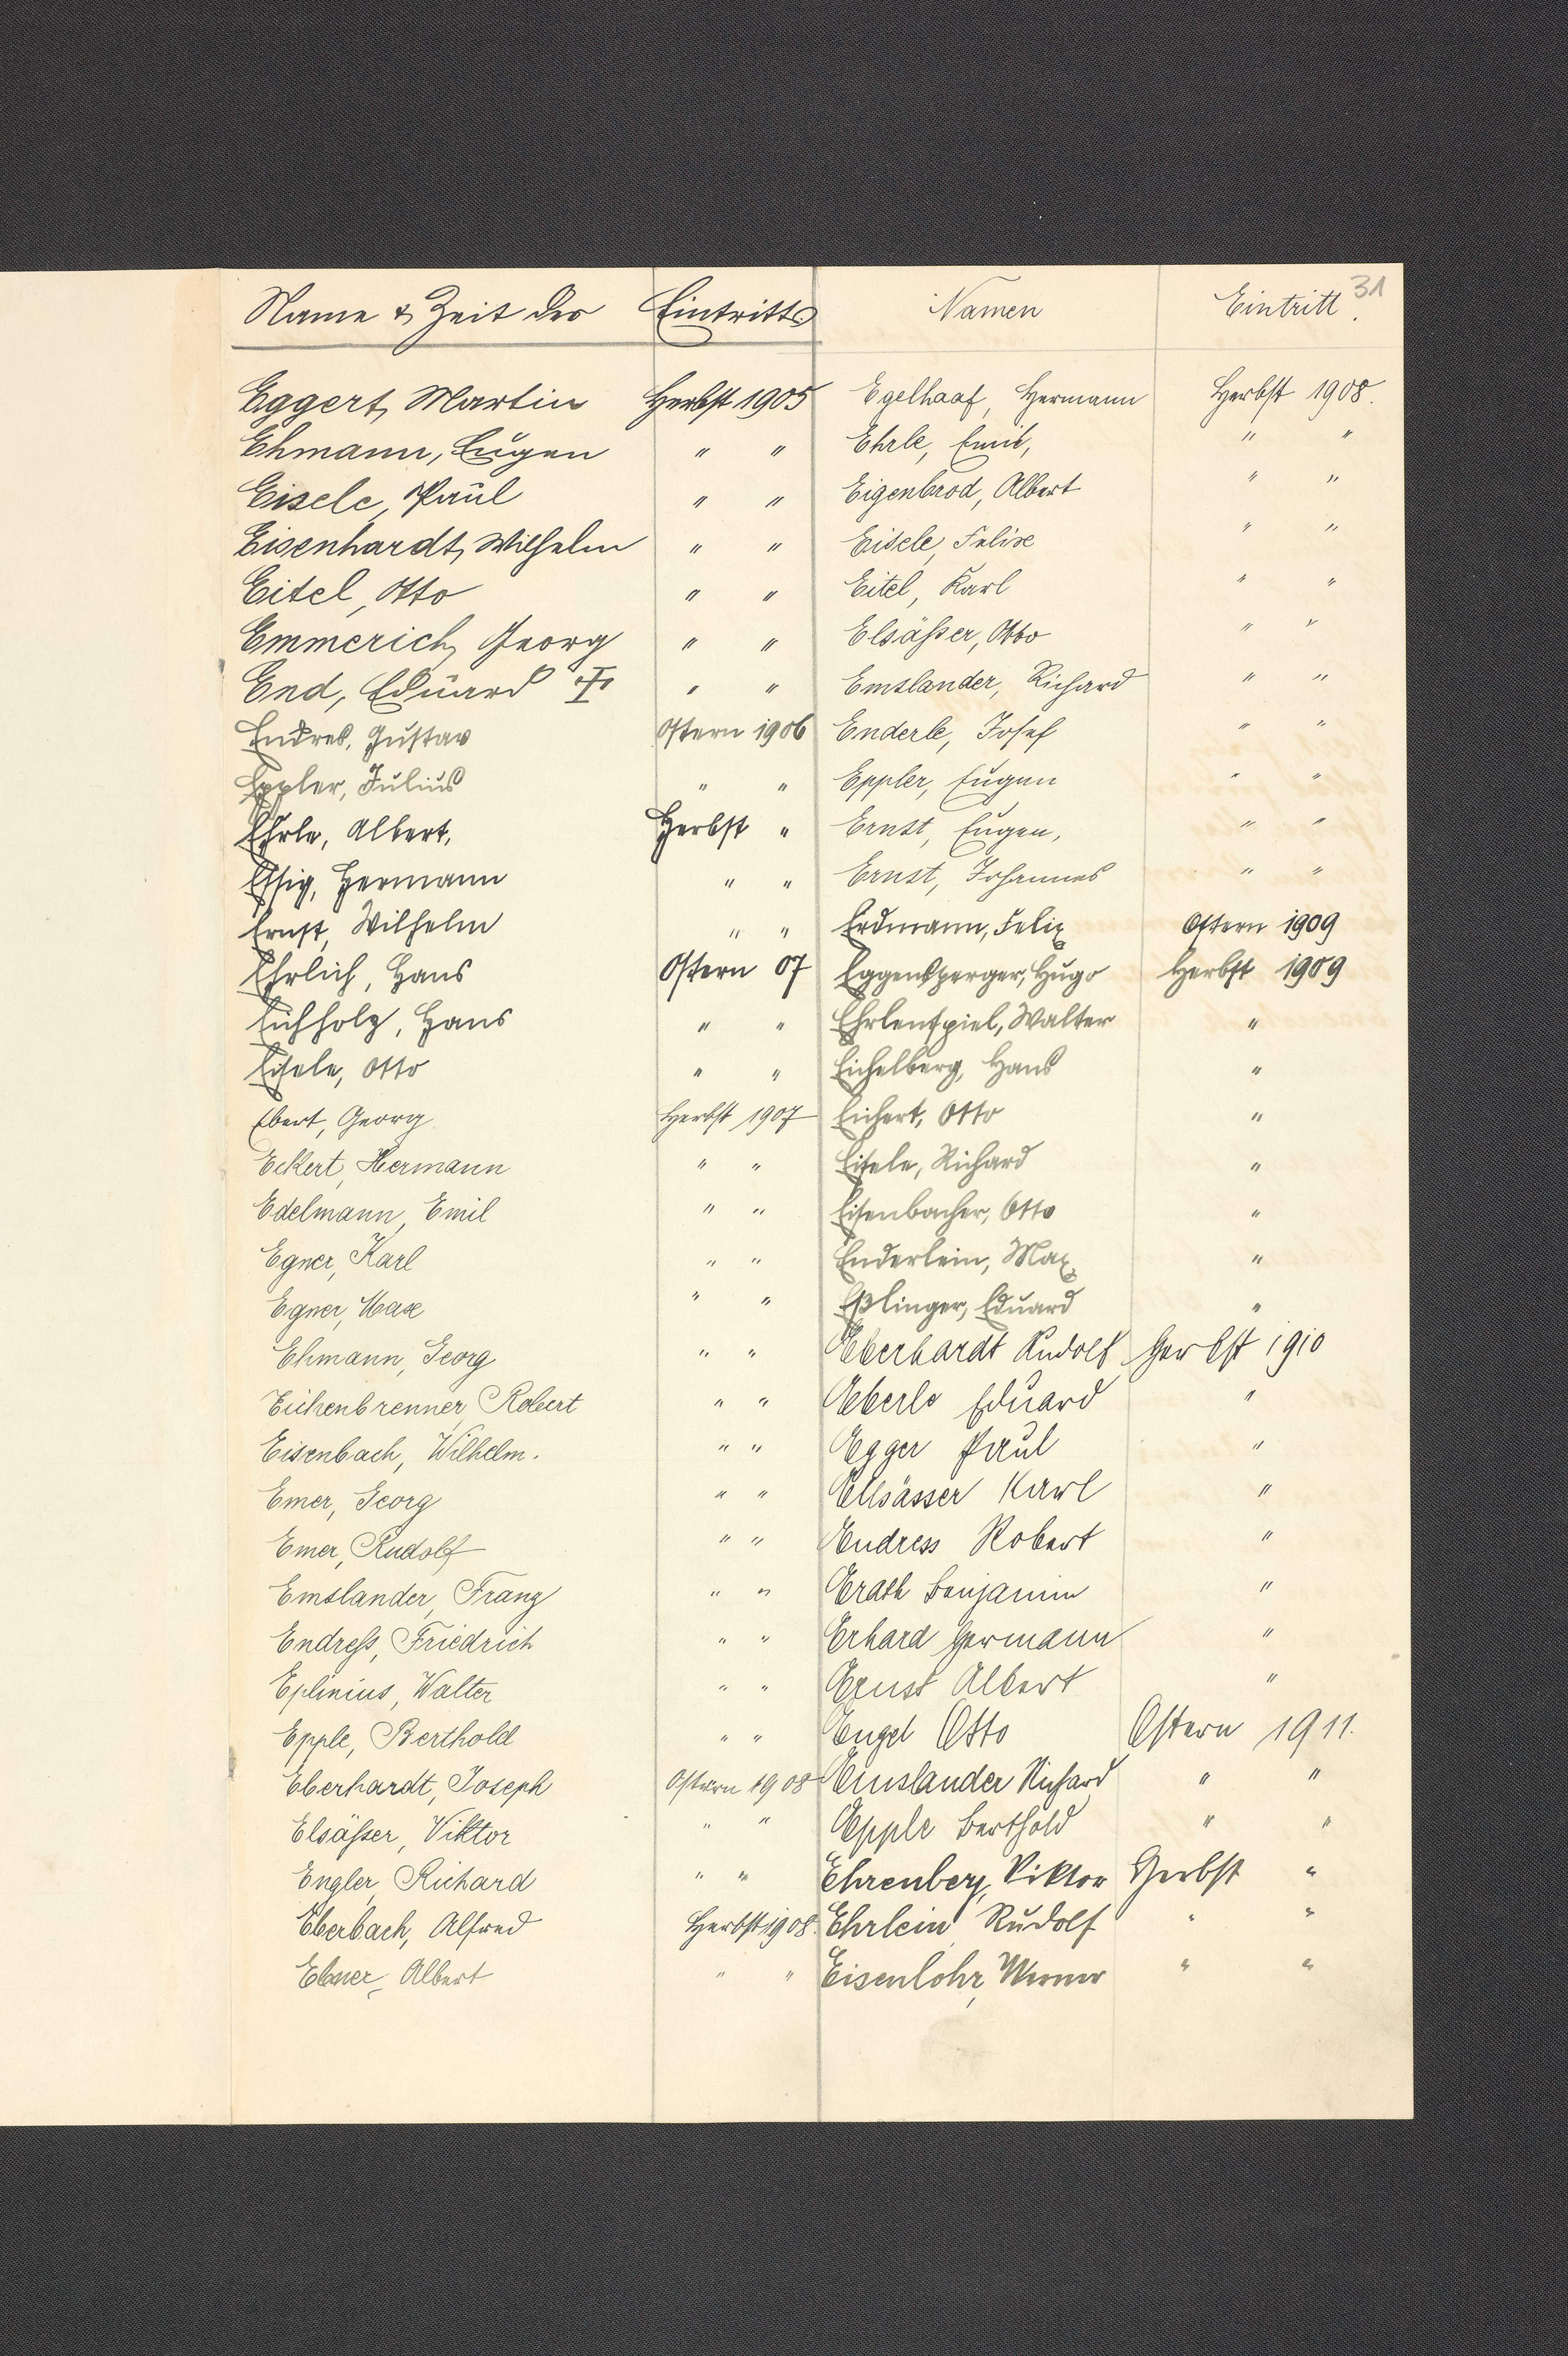 31
Name & Zeit des Eintritts. Namen Eintritt.
Eggert, Martin Herbst 1905 Egelhaaf, Hermann Herbst 1908.
Ehmann, Eugen " " Ehrle, Emil, " "
Eisele, Paul " " Eigenbrod, Albert " "
Eisenhardt, Wilhelm " " Eisele, Felix " "
Eitel, Otto " " Eitel, Karl " "
Emmerich, Georg " " Elsäßer, Otto " "
End, Eduard " " Emslander, Richard " "
Endres, Gustav Ostern 1906 Enderle, Josef " "
Eppler, Julius " " Eppler, Eugen " "
Ehrle, Albert, Herbst " Ernst, Eugen, " "
Essig, Hermann " " Ernst, Johannes " "
Ernst, Wilhelm " " Erdmann, Felix Ostern 1909
Ehrlich, Hans Ostern 07 Eggensperger, Hugo Herbst 1909
Eichholz, Hans " " Ehrlenspiel, Walter "
Eisele, Otto " " Eichelberg, Hans "
Ebert, Georg Herbst 1907 Eichert, Otto "
Eckert, Hermann " " Eisele, Richard "
Edelmann, Emil " " Eisenbacher, Otto "
Egner, Karl " " Enderlein, Max "
Egner, Max " " Eßlinger, Eduard "
Ehmann, Georg " " Eberhardt Rudolf Herbst 1910
Eichenbrenner, Robert " " Eberle Eduard "
Eisenbach, Wilhelm. " " Egger Paul "
Emer, Georg " " Ellsässer Karl "
Emer, Rudolf " " Endress Robert "
Emslander, Franz " " Erath Benjamin "
Endreß, Friedrich " " Erhard Hermann "
Eplinius, Walter " " Ernst Albert "
Epple, Berthold " " Engel Otto Ostern 1911.
Eberhardt, Joseph Ostern 1908 Emslander Richard " "
Elsäßer, Viktor " " Epple Berthold " "
Engler, Richard " " Ehrenberg, Viktor Herbst "
Eberbach, Alfred Herbst 1908. Ehrlein Rudolf " "
Ebner, Albert " " Eisenlohr, Werner " "